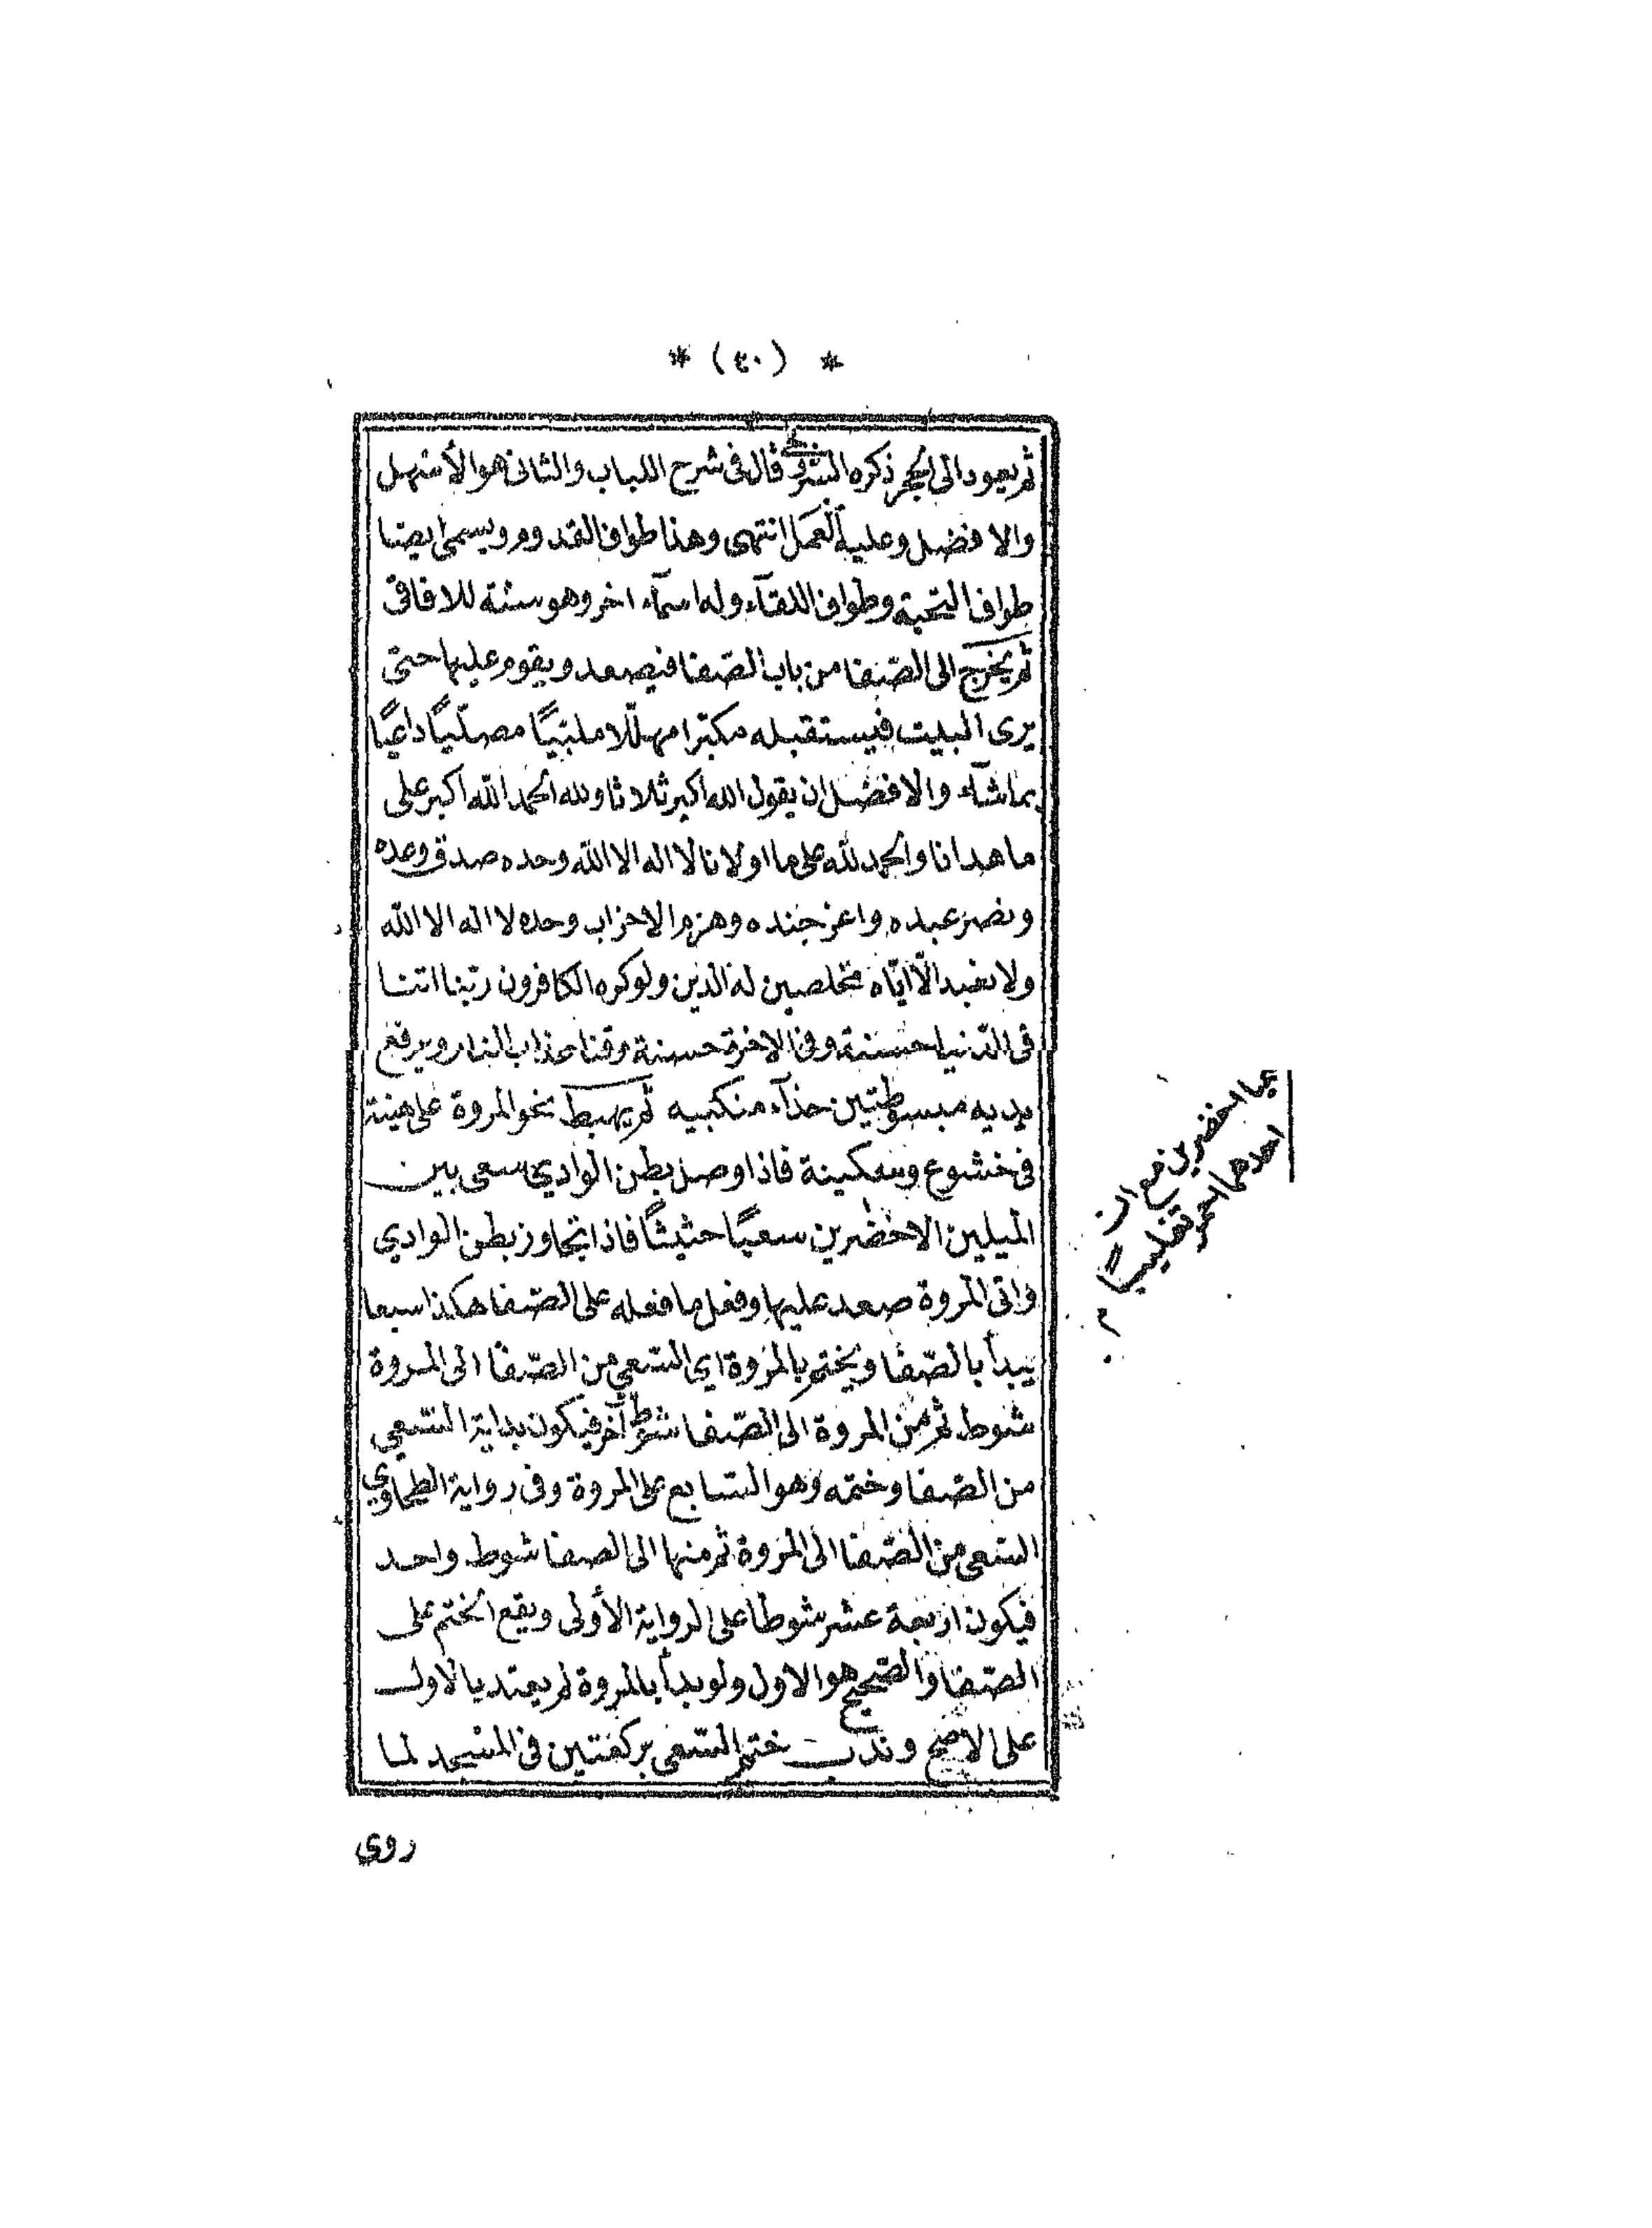 * (٤٠) *
ثم يعود الى الحجر ذكره السرخسى قال فى شرح اللباب والثانى هو الأسهل
والافضل وعليه العمل انتهى وهذا طواف القدوم ويسمى ايضا
طواف التحية وطواف اللقآء وله اسمآء اخر وهو سنة للافاقى
ثم يخرج الى الصّفا من باب الصّفا فيصعد ويقوم عليها حتى
يرى البيت فيستقبله مكبرا مهلّلا ملبّيًا مصلّيًا داعيًا
بما شآء والافضل ان يقول الله اكبر ثلاثا ولله الحمد الله اكبر على
ما هدانا والحمد لله على ما اولانا لا اله الا الله وحده صدق وعده
ونصر عبده واعز جنده وهزم الاحزاب وحده لا اله الا الله
ولا نعبد الّا ايّاه مخلصين له الدّين ولو كره الكافرون ربّنا اتنا
فى الدّنيا حسنة وفى الاخرة حسنة وقنا عذاب النار ويرفع
يديه مبسوطتين حذآء منكبيه ثم يهبط نحو المروة على هينة
فى خشوع وسكينة فاذا وصل بطن الوادي سعى بين
الميلين الاخضرين سعيًا حثيثًا فاذا تجاوز بطن الوادي
واتى المروة صعد عليها وفعل ما فعله على الصّفا هكذا سبعا
يبدأ بالصّفا ويختم بالمروة اى السّعى من الصّفا الى المروة
شوط ثم من المروة الى الصّفا شوط آخر فيكون بداية السّعي
من الصّفا وختمه وهو السّابع على المروة وفى رواية الطحاوي
السّعى من الصّفا الى المروة ثم منها الى الصفا شوط واحد
فيكون اربعة عشر شوطا على الرواية الأولى ويقع الختم على
الصّفا والصّحيح هو الاول ولو بدأ بالمروة لم يعتد بالاول
على الاصح وندب ختم السّعى بركعتين فى المسجد لما
روى
الاخضرين مع ان
احدهما احمر تغليبًا
م